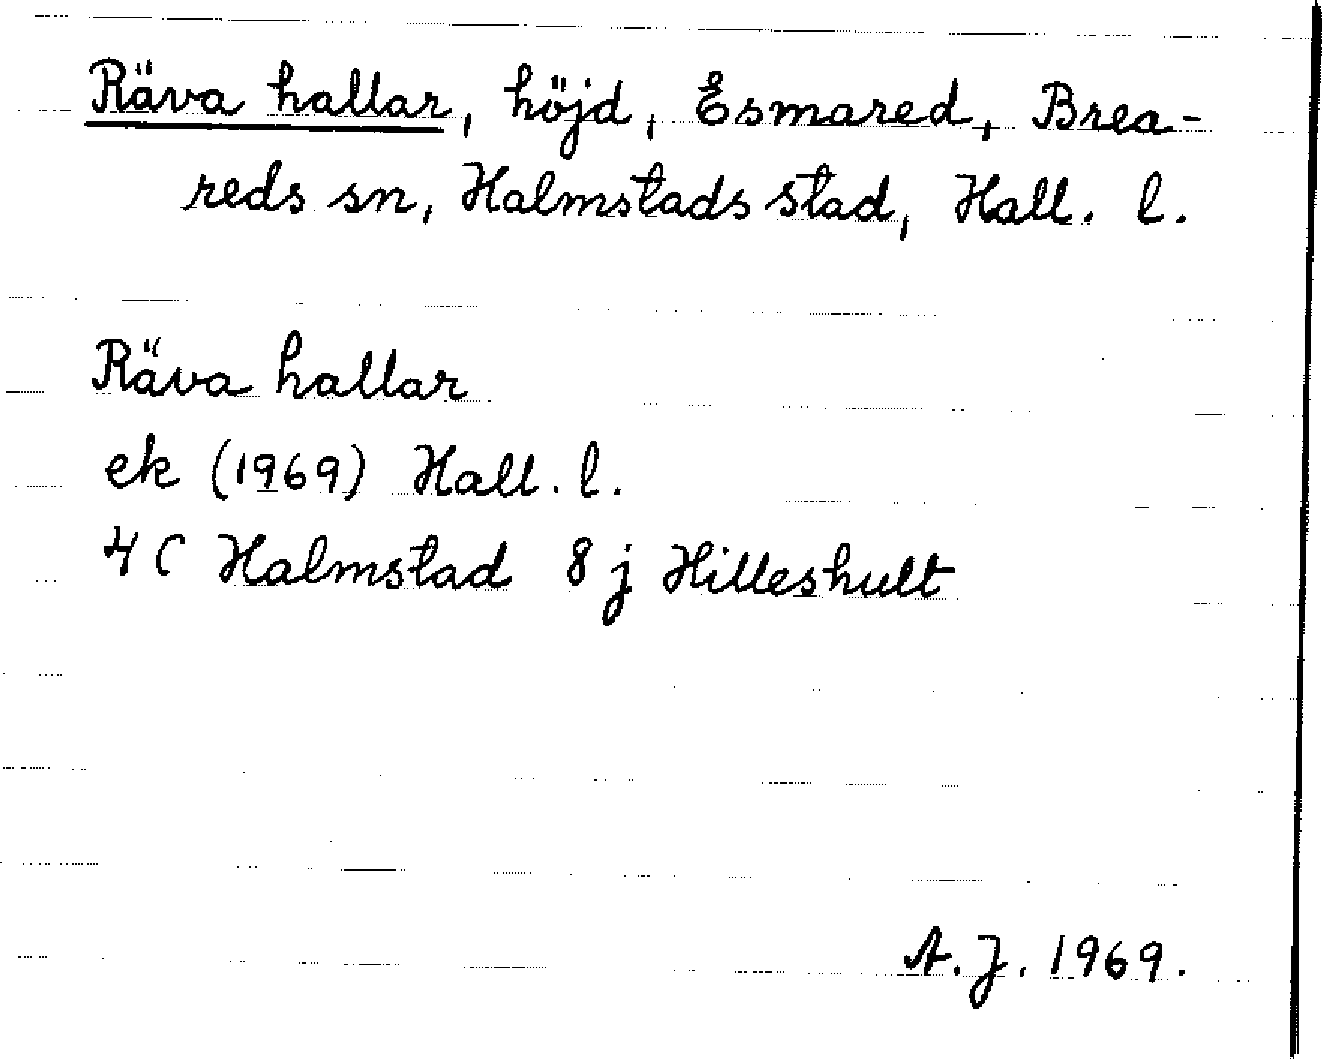 Räva hallar, höjd, Esmared, Brea-
reds sn, Halmstads stad, Hall. l.
Räva hallar
ek (1969) Hall. l.
4 C Halmstad 8 j Hilleshult
A. J. 1969.